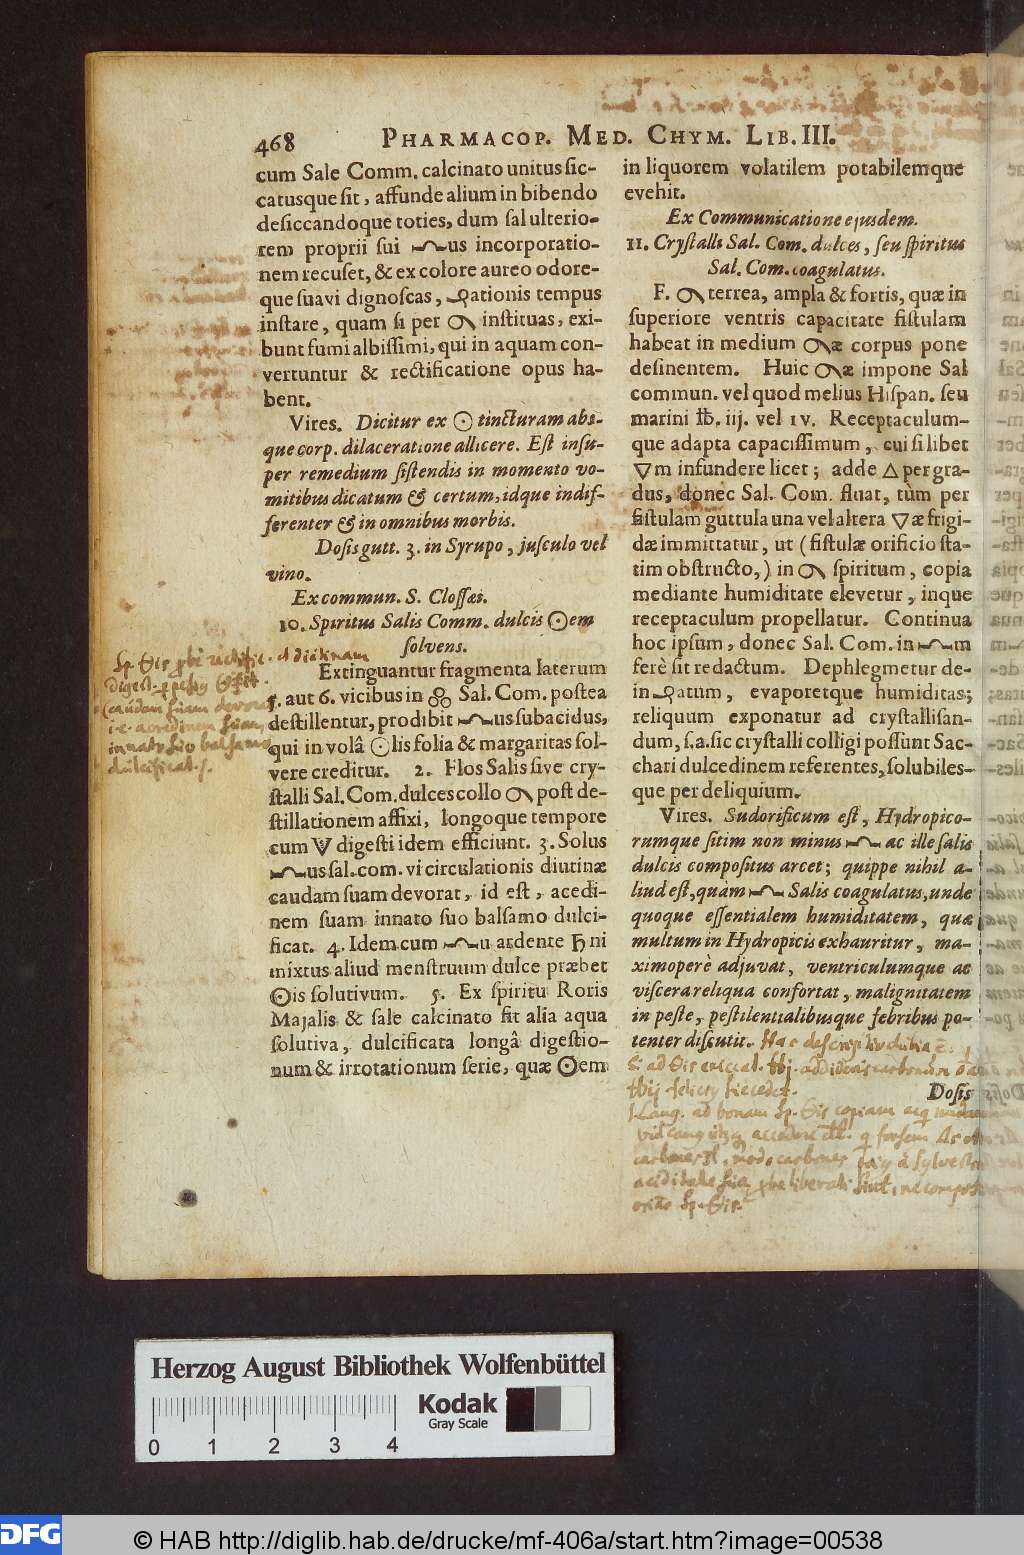 468 PHARMACOP. MED. CHYM. LIB. III.
cum Sale Comm. calcinato unitus sic-
catusque sit, affunde alium in bibendo
desiccandoque toties, dum sal ulterio-
rem proprii sui us incorporatio-
nem recuset, & ex colore aureo odore-
que suavi dignoscas, ationis tempus
instare, quam si per instituas, exi-
bunt fumi albissimi, qui in aquam con-
vertuntur & rectificatione opus ha-
bent.
Vires. Dicitur ex ☉ tincturam abs-
que corp. dilaceratione allicere. Est insu-
per remedium sistendis in momento vo-
mitibus dicatum & certum, idque indif-
ferenter & in omnibus morbis.
Dosis gutt. 3. in Syrupo, jusculo vel
vino.
Ex commun. S. Clossæi.
10. Spiritus Salis Comm. dulcis ☉em
solvens.
Extinguantur fragmenta laterum
5. aut 6. vicibus in Sal. Com. postea
destillentur, prodibit us subacidus,
qui in volâ ☉lis folia & margaritas sol-
vere creditur. 2. Flos Salis sive cry-
stalli Sal. Com. dulces collo post de-
stillationem affixi, longoque tempore
cum digesti idem efficiunt. 3. Solus
us sal. com. vi circulationis diutinæ
caudam suam devorat, id est, acedi-
nem suam innato suo balsamo dulci-
ficat. 4. Idem cum u ardente ♄ni
mixtus aliud menstruum dulce præbet
☉is solutivum. 5. Ex spiritu Roris
Majalis & sale calcinato fit alia aqua
solutiva, dulcificata longâ digestio-
num & irrotationum serie, quæ ☉em
in liquorem volatilem potabilemque
evehit.
Ex Communicatione ejusdem.
11. Crystalli Sal. Com. dulces, seu spiritus
Sal. Com. coagulatus.
F. terrea, ampla & fortis, quæ in
superiore ventris capacitate fistulam
habeat in medium æ corpus pone
desinentem. Huic æ impone Sal
commun. vel quod melius Hispan. seu
marini ℔. iij. vel 1v. Receptaculum-
que adapta capacissimum, cui si libet
▽m infundere licet; adde △ per gra-
dus, donec Sal. Com. fluat, tùm per
fistulam guttula una vel altera ▽æ frigi-
dæ immittatur, ut (fistulæ orificio sta-
tim obstructo,) in spiritum, copia
mediante humiditate elevetur, inque
receptaculum propellatur. Continua
hoc ipsum, donec Sal. Com. in m
ferè sit redactum. Dephlegmetur de-
in atum, evaporetque humiditas;
reliquum exponatur ad crystallisan-
dum, s. a. sic crystalli colligi possunt Sac-
chari dulcedinem referentes, solubiles-
que per deliquium.
Vires. Sudorificum est, Hydropico-
rumque sitim non minus ac ille salis
dulcis compositus arcet; quippe nihil a-
liud est, quàm Salis coagulatus, unde
quoque essentialem humiditatem, quæ
multum in Hydropicis exhauritur, ma-
ximoperè adjuvat, ventriculumque ac
viscera reliqua confortat, malignitatem
in peste, pestilentialibusque febribus po-
tenter discutit.
Dosis
caudam suam devorat
i.e. acredinem suam
innato suo balsamo
dulcificat.
Herzog August Bibliothek Wolfenbüttel
0 1 2 3 4
Kodak
Gray Scale
DFG © HAB http://diglib.hab.de/drucke/mf-406a/start.htm?image=00538